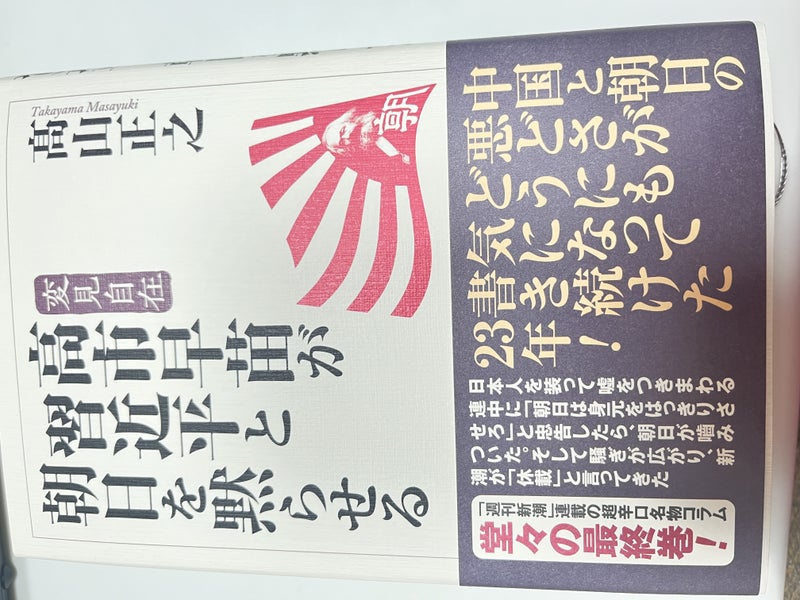 Takayama Masayuki
髙山正之
朝
変見自在
高市早苗が
習近平と
朝日を黙らせる
中国と朝日の
悪どさが
どうにも
気になって
書き続けた
23年!
日本人を装って嘘をつきまわる
連中に「朝日は身元をはっきりさ
せろ」と忠告したら、朝日が嚙み
ついた。そして騒ぎが広がり、新
潮が「休載」と言ってきた
「週刊新潮」連載の超辛口名物コラム
堂々の最終巻!